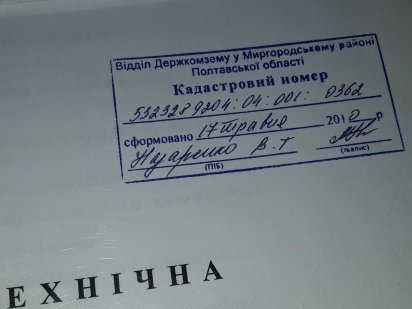 Відділ Держкомзему у Миргородському районі
Полтавської області
Кадастровий номер
5323289204:04:001:0362
сформовано 17 травня 2010 р
Назаренко В.Т
(ПІБ) (підпис)
ЕХНІЧНА